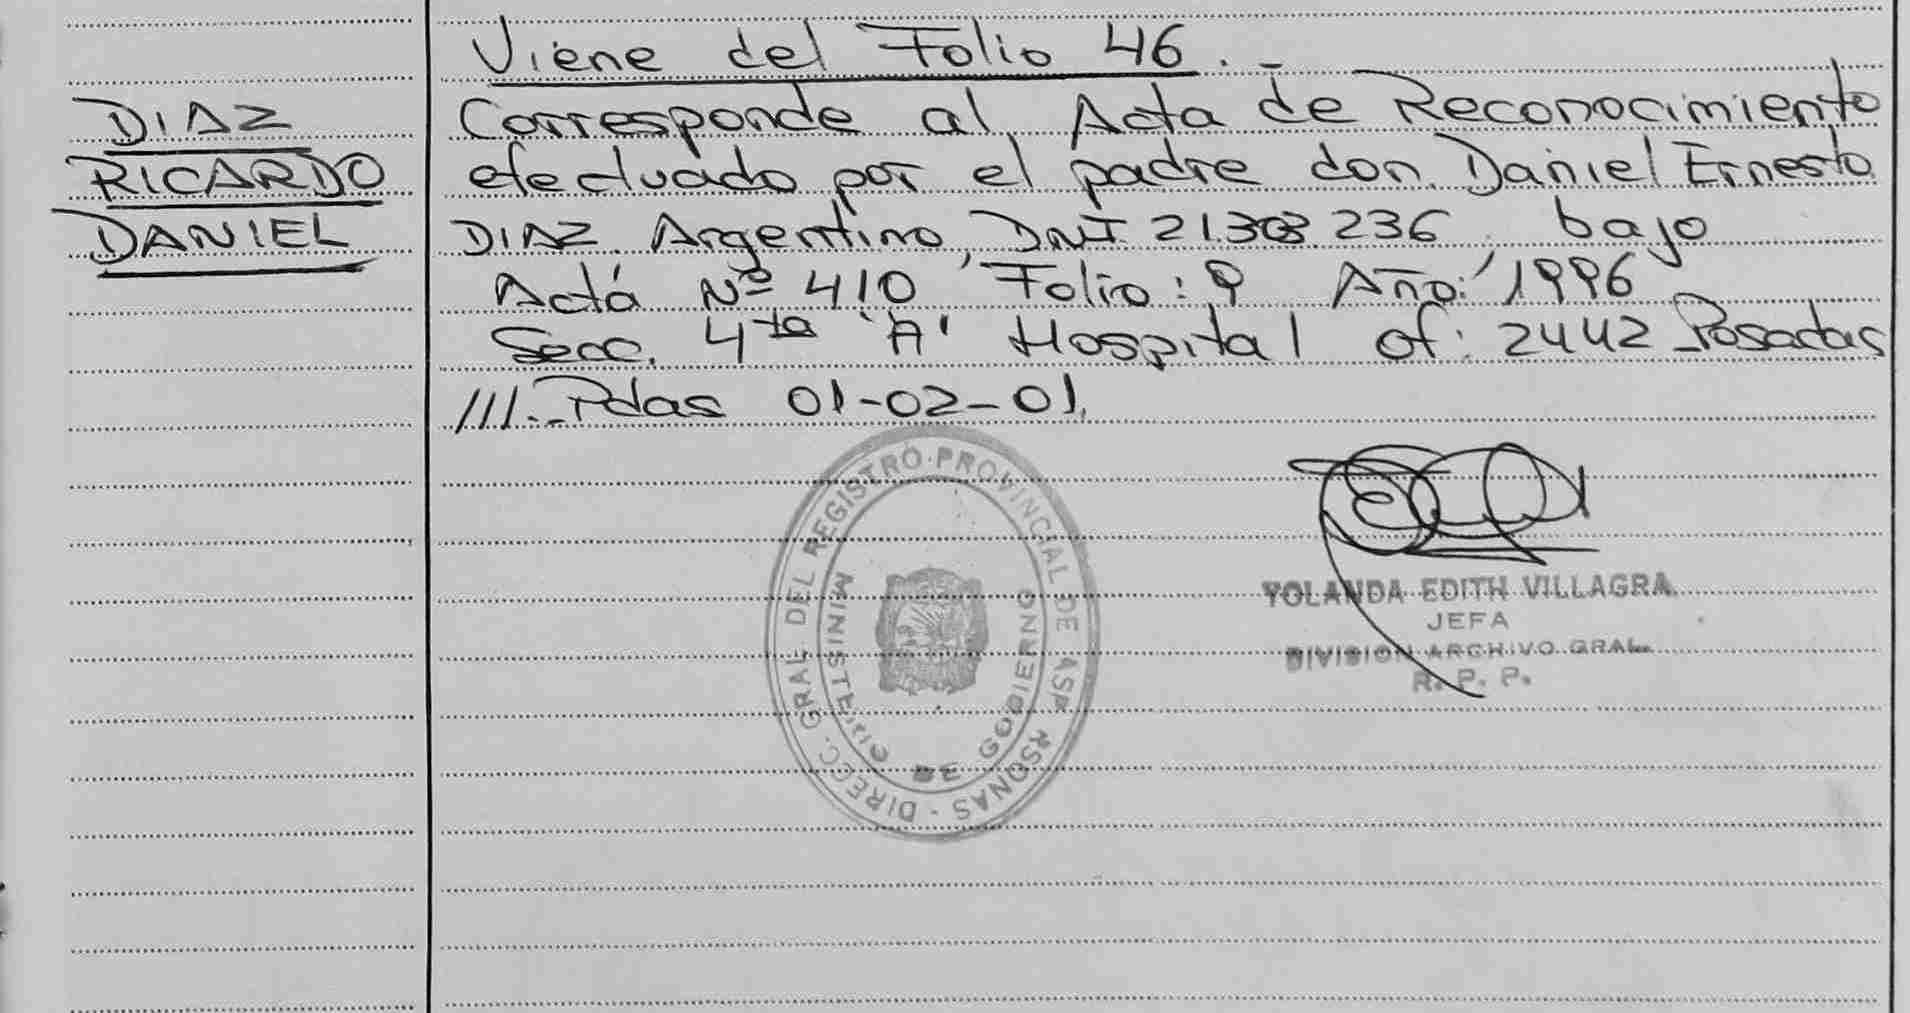 Viene del Folio 46.-
DIAZ
RICARDO
DANIEL
Corresponde al Acta de Reconocimiento
efectuado por el padre don Daniel Ernesto
DIAZ. Argentino, DNI 21.303 236. bajo
Actá Nº 410 Folio: 9 Año: 1996
Secc. 4ta "A" Hospital of: 2442 Posadas
///.- Pdas 01-02-01.
DIRECC. GRAL. DEL REGISTRO PROVINCIAL DE PERSONAS -
MINISTERIO DE GOBIERNO
YOLANDA EDITH VILLAGRA
JEFA
DIVISION ARCHIVO GRAL.
R. P. P.